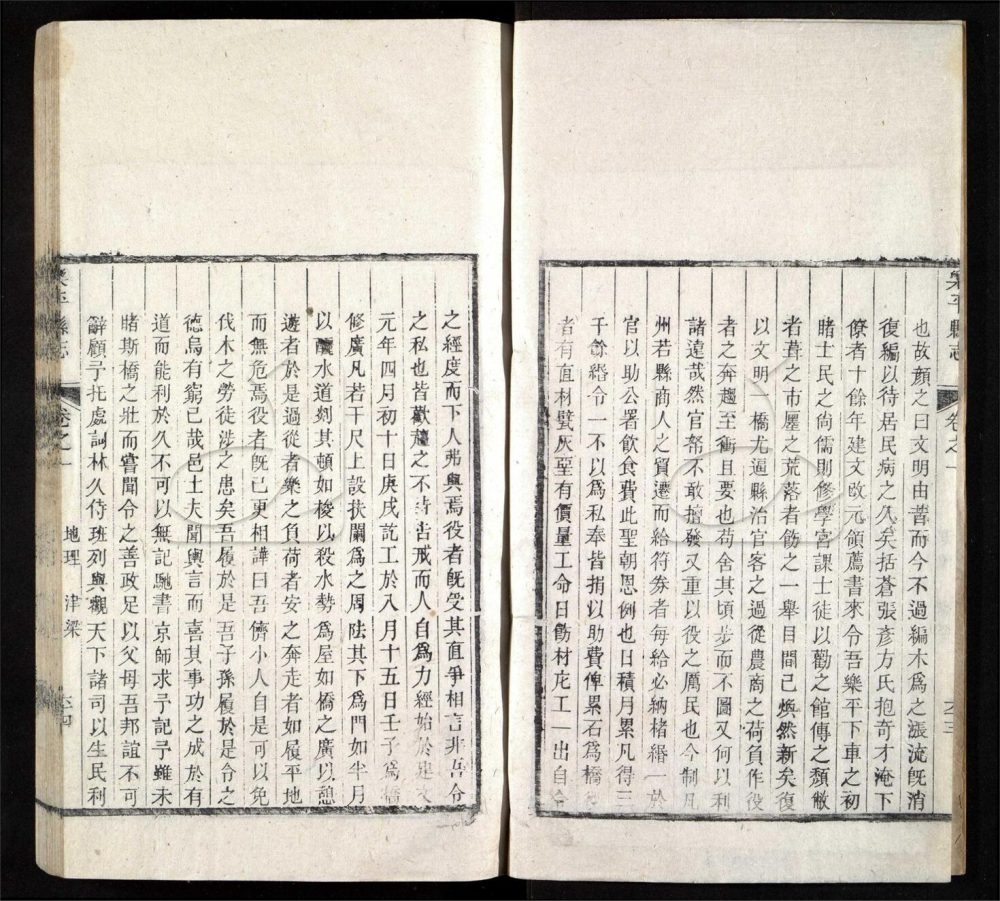 樂平縣志
卷之一
六十三
也故顏之曰文明由昔而今不過編木為之漲流旣消
復編以待居民病之久矣括蒼張彥方氏抱奇才淹下
僚者十餘年建文改元領薦書來令吾樂平下車之初
賭士民之尚儒則修學宮課士徒以勸之館傳之頹敝
者葺之市廛之荒落者飭之一舉目間已煥然新矣復
以文明一橋尤逼縣治官客之過從農商之荷負作役
者之奔趨至衝且要也苟舍其頃步而不圖又何以利
諸遠哉然官帑不敢擅發又重以役之厲民也今制凡
州若縣商人之貿遷而給符券者每給必納楮緡一於
官以助公署飲食費此聖朝恩例也日積月累凡得三
千餘緡令一不以為私奉皆捐以助費俾累石為橋
者有直材甓灰堊有價量工命日飭材庀工一出自令
之經度而下人弗與焉役者旣受其直爭相言非吾令
之私也皆歡趨之不待告戒而人自為力經始於建文
元年四月初十日庚戌訖工於八月十五日壬子為橋
修廣凡若干尺上設扶闌為之周阹其下為門如半月
以釃水道剡其頓如梭以殺水勢為屋如橋之廣以憩
遊者於是過從者樂之負荷者安之奔走者如履平地
而無危焉役者旣已更相譁曰吾儕小人自是可以免
伐木之勞徒涉之患矣吾履於是吾子孫履於是令之
德烏有窮已哉邑士夫聞輿言而喜其事功之成於有
道而能利於久不可以無記馳書京師求予記予雖未
賭斯橋之壯而嘗聞令之善政足以父母吾邦誼不可
辭顧予托處詞林久侍班列與觀天下諸司以生民利
樂平縣志
卷之一
地理 津梁
六十四